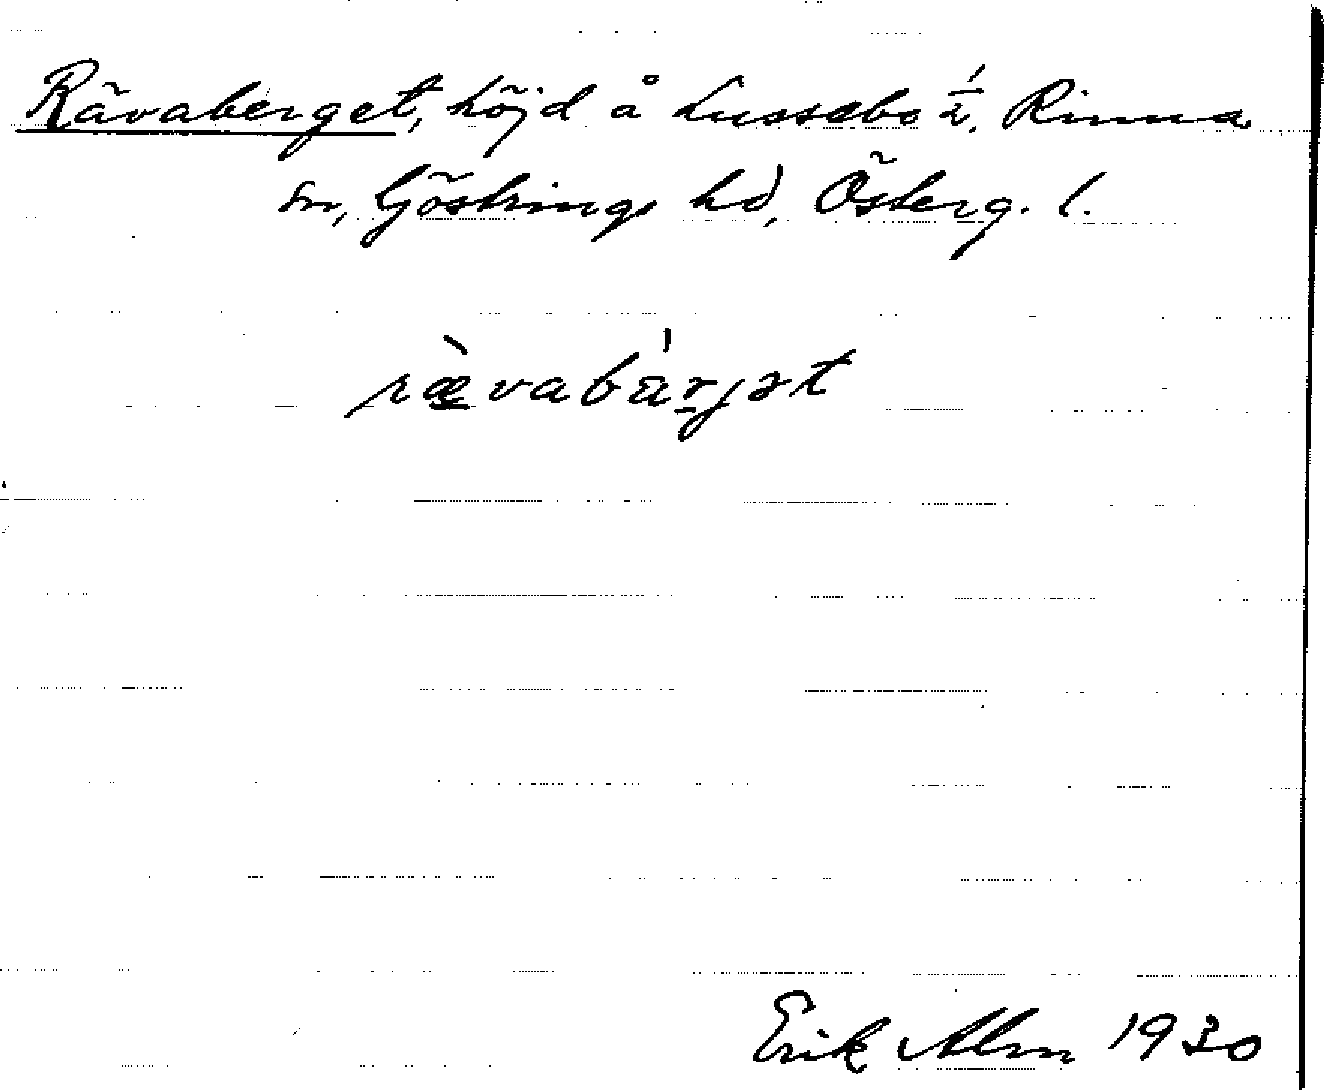 Rävaberget, höjd å Lussebo 1/2, Rinna
sn, Göstrings hd, Österg. l.
ræ̀vabár̥jət
Erik Alm 1930